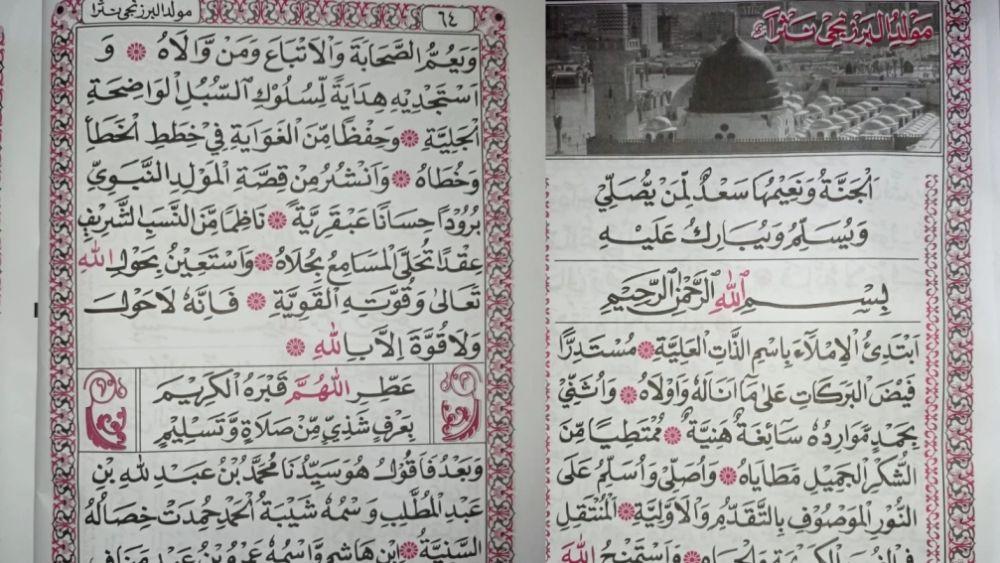 مَوْلِدُ الْبَرْزَنْجِي نَثْرًا
اَلْجَنَّةُ وَنَعِيْمُهَا سَعْدٌ لِمَنْ يُّصَلِّيْ
وَيُسَلِّمُ وَيُبَارِكُ عَلَيْهِ
بِسْمِ اللهِ الرَّحْمٰنِ الرَّحِيْمِ
اَبْتَدِئُ الْاِمْلَاءَ بِاسْمِ الذَّاتِ الْعَلِيَّةِ ۞ مُسْتَدِرًّا
فَيْضَ الْبَرَكَاتِ عَلٰى مَا اَنَالَهُ وَاَوْلَاهُ ۞ وَاُثَنِّيْ
بِحَمْدٍ مَّوَارِدُهُ سَائِغَةٌ هَنِيَّةٌ ۞ مُمْتَطِيًا مِّنَ
الشُّكْرِ الْجَمِيْلِ مَطَايَاهُ ۞ وَاُصَلِّيْ وَاُسَلِّمُ عَلَى
النُّوْرِ الْمَوْصُوْفِ بِالتَّقَدُّمِ وَالْاَوَّلِيَّةِ ۞ الْمُنْتَقِلِ
وَاَسْتَمْنِحُ اللهَ
٦٤ مولد البرزنجي نثرا
وَيَعُمُّ الصَّحَابَةَ وَالْاَتْبَاعَ وَمَنْ وَّالَاهُ ۞ وَ
اَسْتَجْدِيْهِ هِدَايَةً لِّسُلُوْكِ السُّبُلِ الْوَاضِحَةِ
الْجَلِيَّةِ ۞ وَحِفْظًا مِّنَ الْغَوَايَةِ فِيْ خِطَطِ الْخَطَأِ
وَخُطَاهُ ۞ وَاَنْشُرُ مِنْ قِصَّةِ الْمَوْلِدِ النَّبَوِيِّ
بُرُوْدًا حِسَانًا عَبْقَرِيَّةً ۞ نَاظِمًا مِّنَ النَّسَبِ الشَّرِيْفِ
عِقْدًا تُحَلَّى الْمَسَامِعُ بِحُلَاهُ ۞ وَاَسْتَعِيْنُ بِحَوْلِ اللهِ
تَعَالٰى وَقُوَّتِهِ الْقَوِيَّةِ ۞ فَاِنَّهُ لَا حَوْلَ
وَلَا قُوَّةَ اِلَّا بِاللهِ ۞
عَطِّرِ اللّٰهُمَّ قَبْرَهُ الْكَرِيْمَ
بِعَرْفٍ شَذِيٍّ مِّنْ صَلَاةٍ وَّتَسْلِيْمٍ
وَبَعْدُ فَاَقُوْلُ هُوَ سَيِّدُنَا مُحَمَّدُ بْنُ عَبْدِ اللهِ بْنِ
عَبْدِ الْمُطَّلِبِ وَاسْمُهُ شَيْبَةُ الْحَمْدِ حُمِدَتْ خِصَالُهُ
السَّنِيَّةُ ۞ اِبْنِ هَاشِمٍ وَّاسْمُهُ عَمْرُو بْنُ عَبْدِ مَنَافٍ